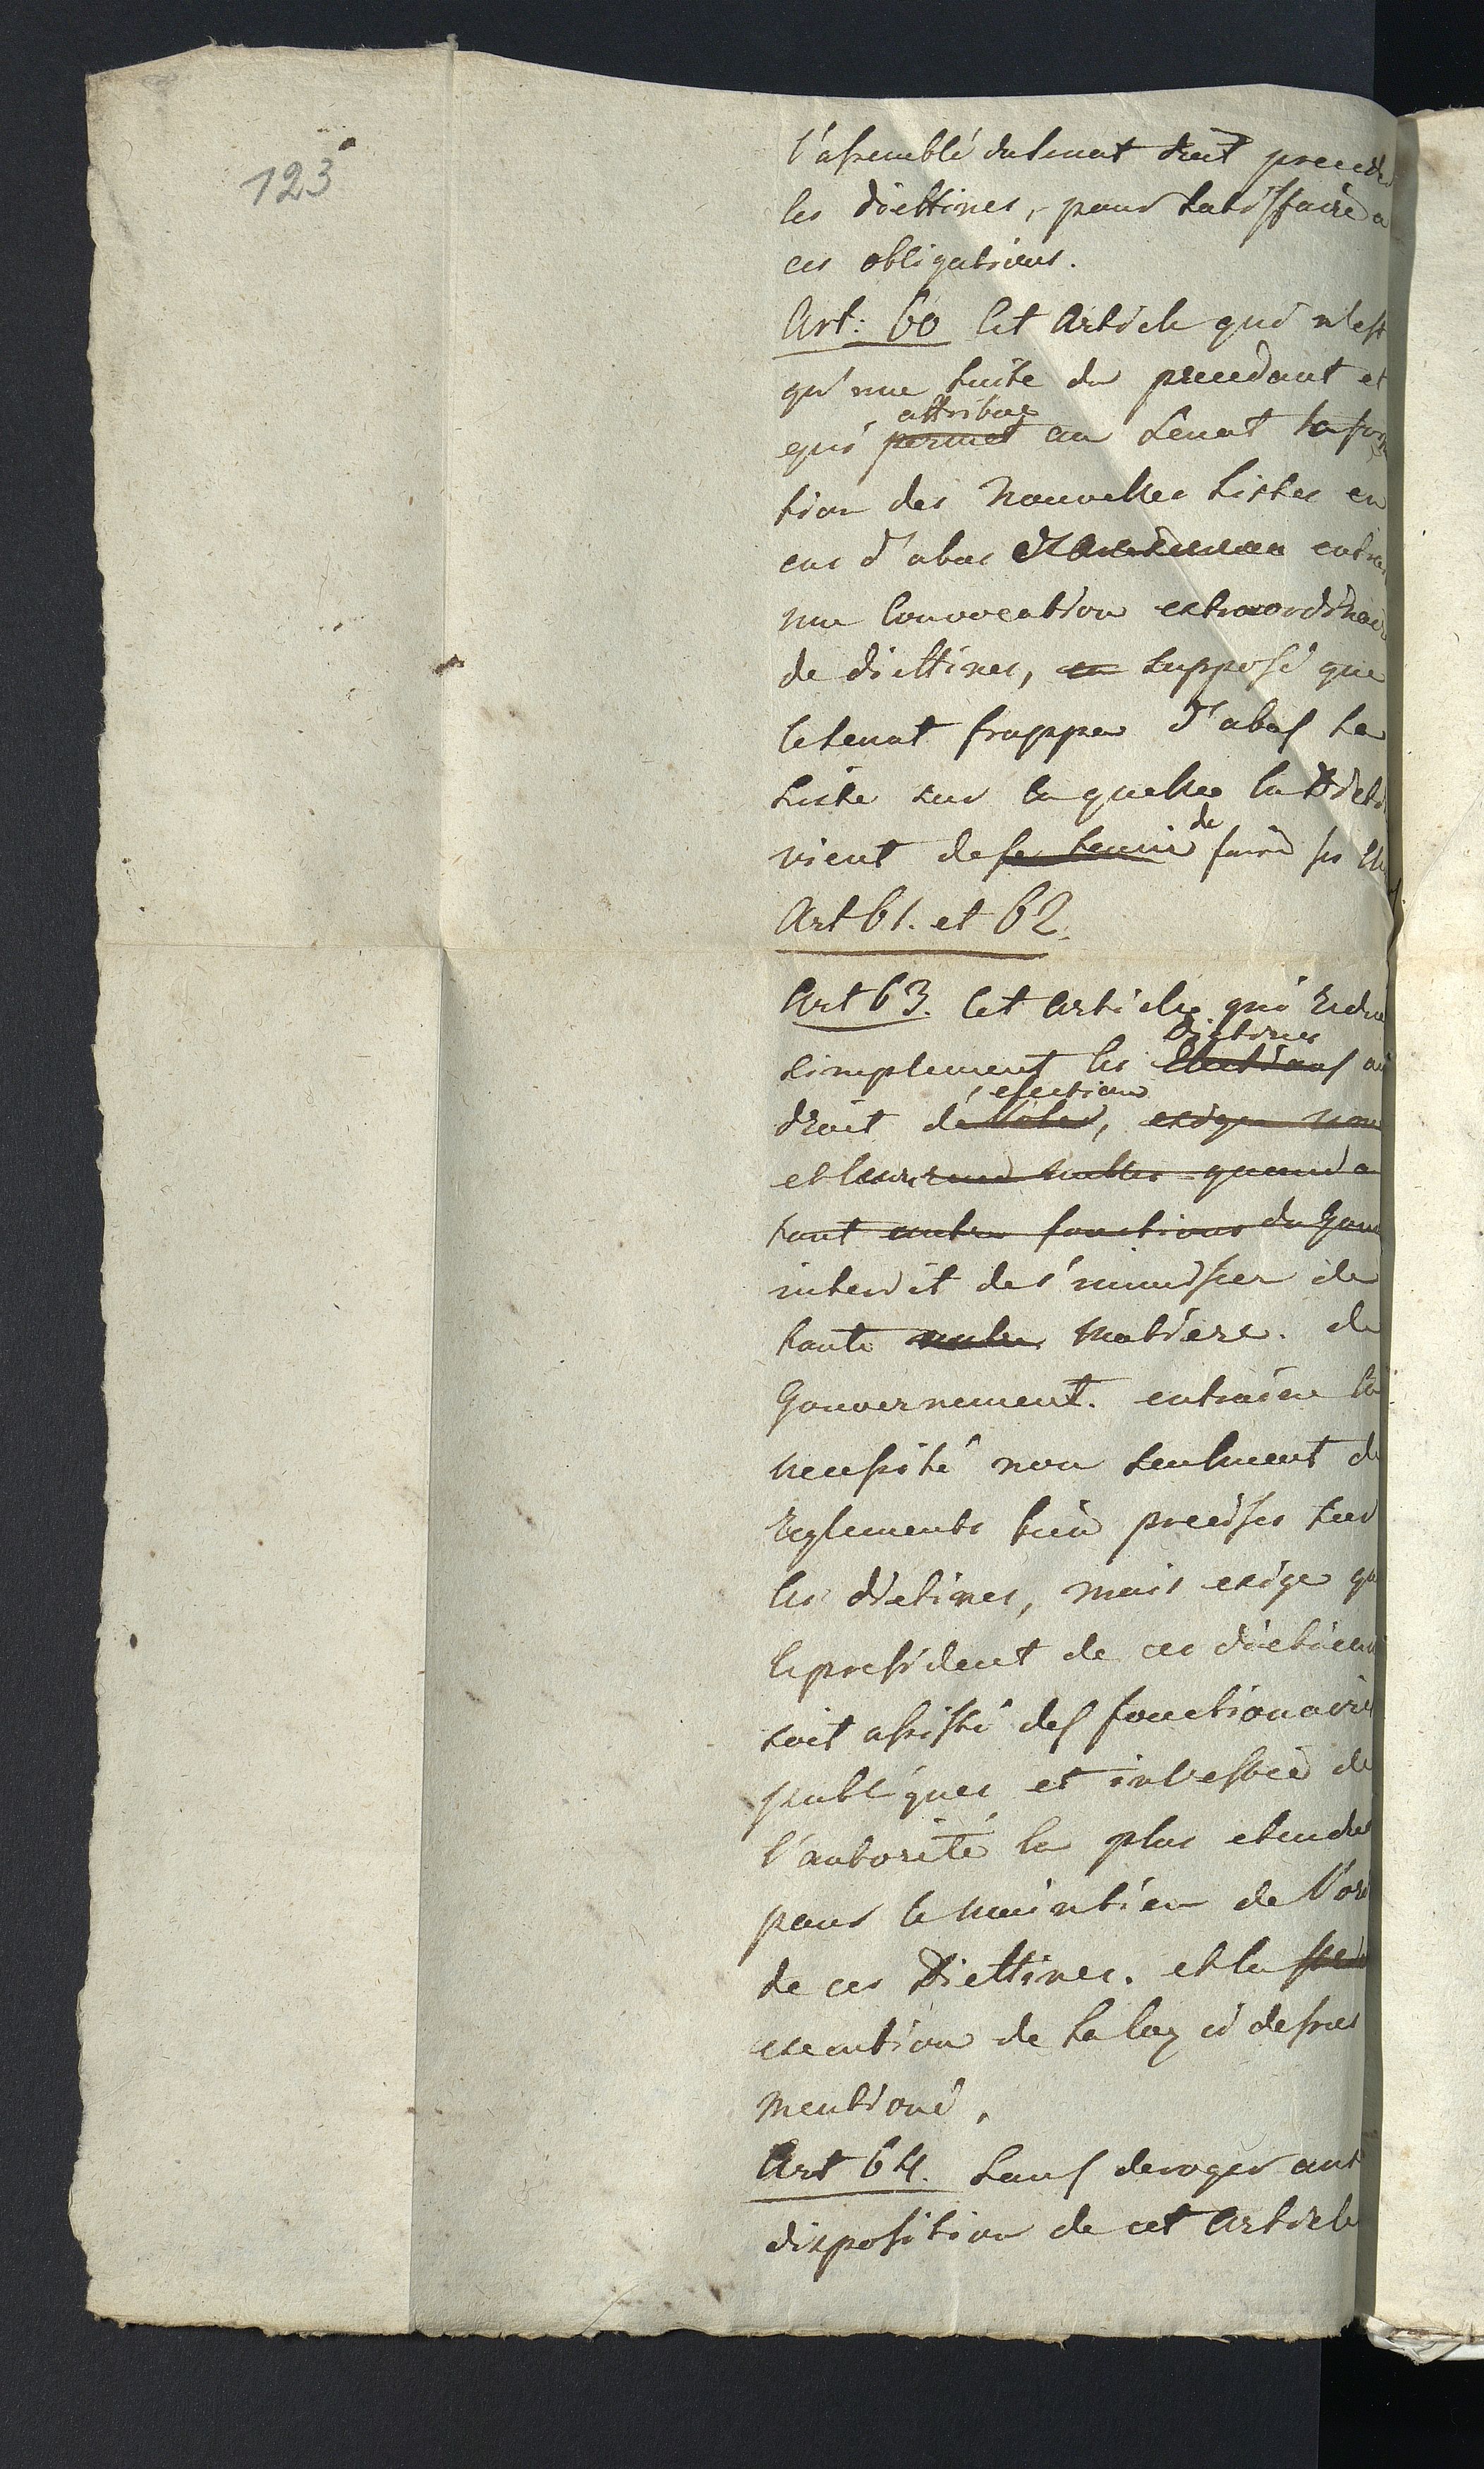 123
l'assemblé du Senat doit preceder
les diettines, pour satisffaire a
ces obligations.
Art: 60 Cet Article qui n'est
qu'une suite du precedant et
attribue
qui permet au Senat la for
tion des Nouvelles Listes en
cas d'abus entra
une Convocation extraordinair
de diettines, en supposé que
le Senat frappe d'abus la
Liste sur la quelle la Dieti
vient de se tenir de faire ses Ele
Art 61. et 62.
Art 63. Cet Article qui Redui
Dietines
simplement les Elections au
election
droit de Voter, exige non
et leurs rend nulles quand a
tout autre fonctions du Gouv
interdit de s'immisser de
toute autre Matiere. de
Gouvernement. entraine la
necessité non seulment de
Reglements bien precises sur
les dietines, mais exige qu
le president de ces dietines
soit assisté des fonctionaires
publiques et investie de
l'autorité la plus etendue
pour le maintien de l'ord
de ces Diettines. et la
execution de la loy ci dessus
mentioné,
Art 64. Sans deroger aux
disposition de cet Article